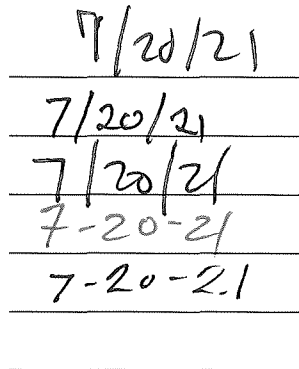 7/20/21
7/20/21
7/20/21
7-20-21
7-20-21